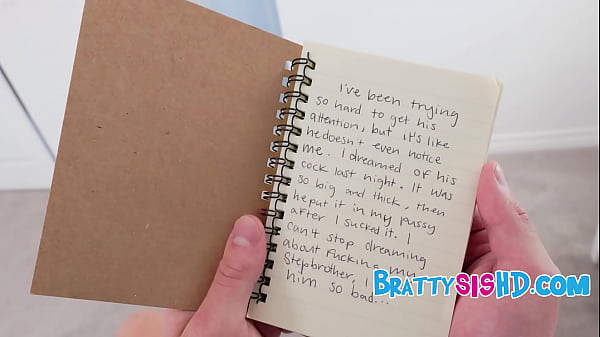 I've been trying
so hard to get his
attention, but it's like
he doesn't even notice
me. I dreamed of his
cock last night. It was
so big and thick, then
he put it in my pussy
after I sucked it. I
can't stop dreaming
about fucking my
Stepbrother, I
him so bad...
BRATTYSISHD.COM